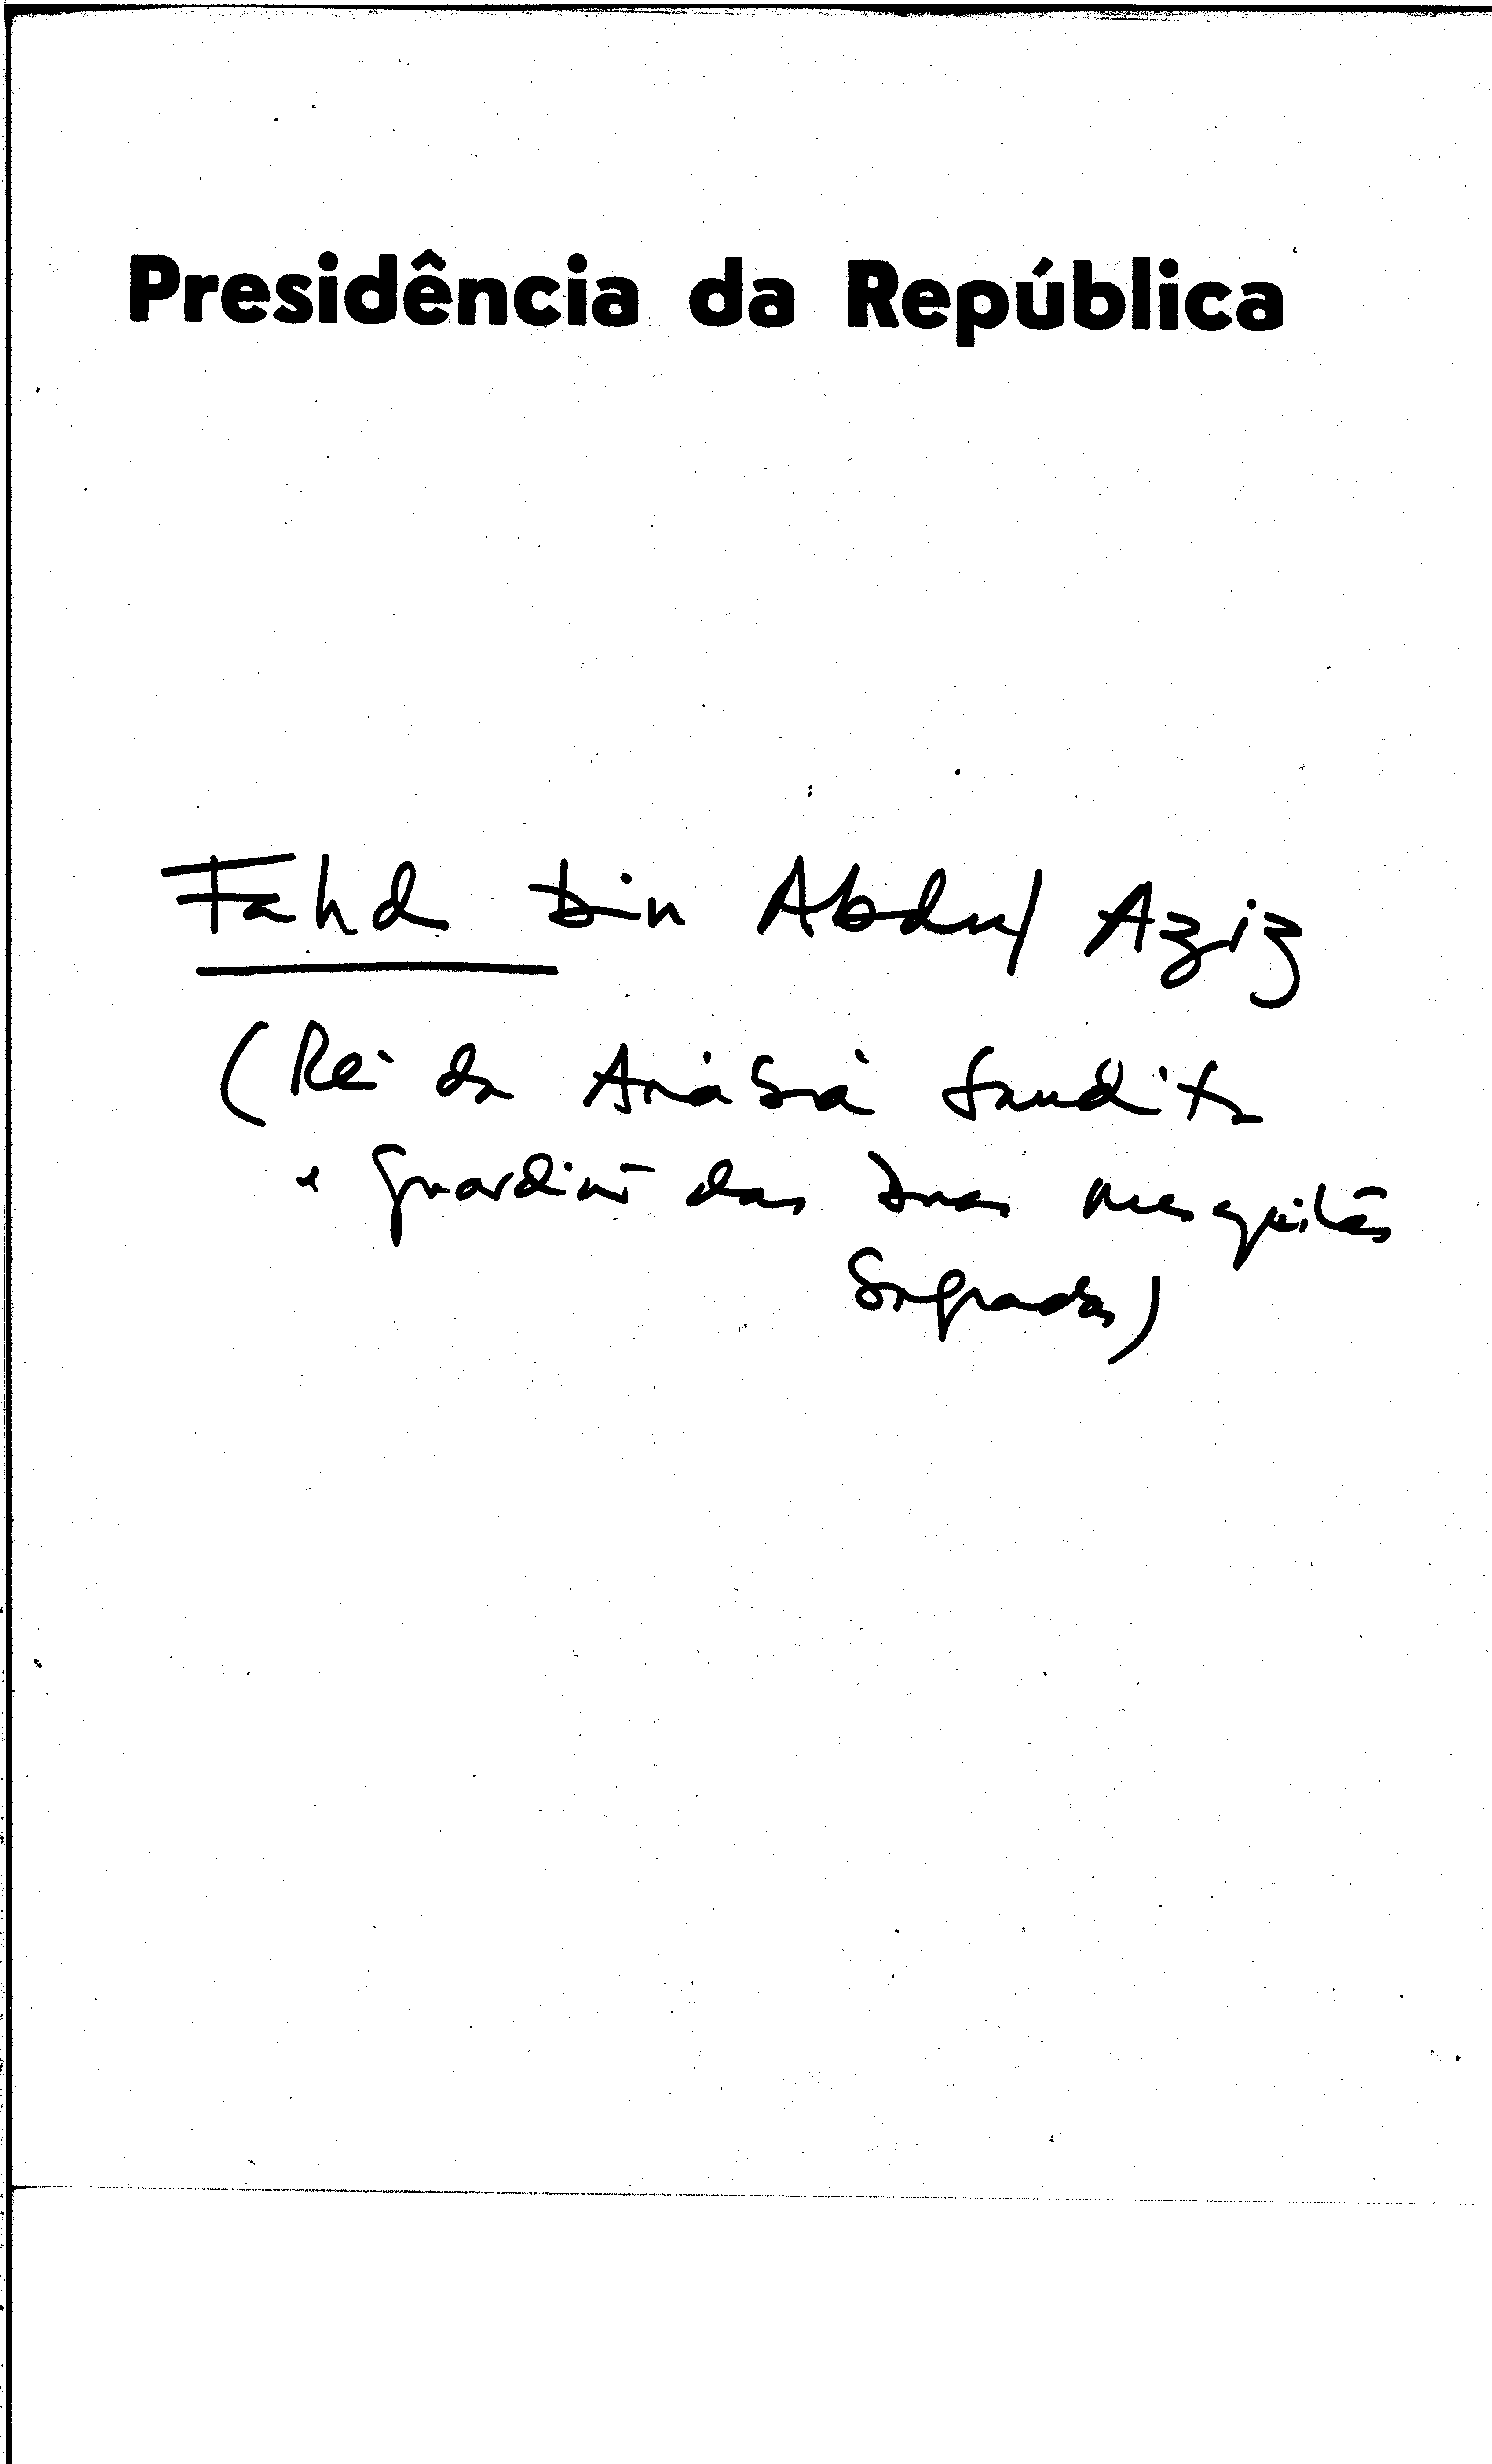 Presidência da República
Fahd bin Abdul Aziz
(Rei da Arábia Saudita
e Guardião das Duas Mesquitas
Sagradas)